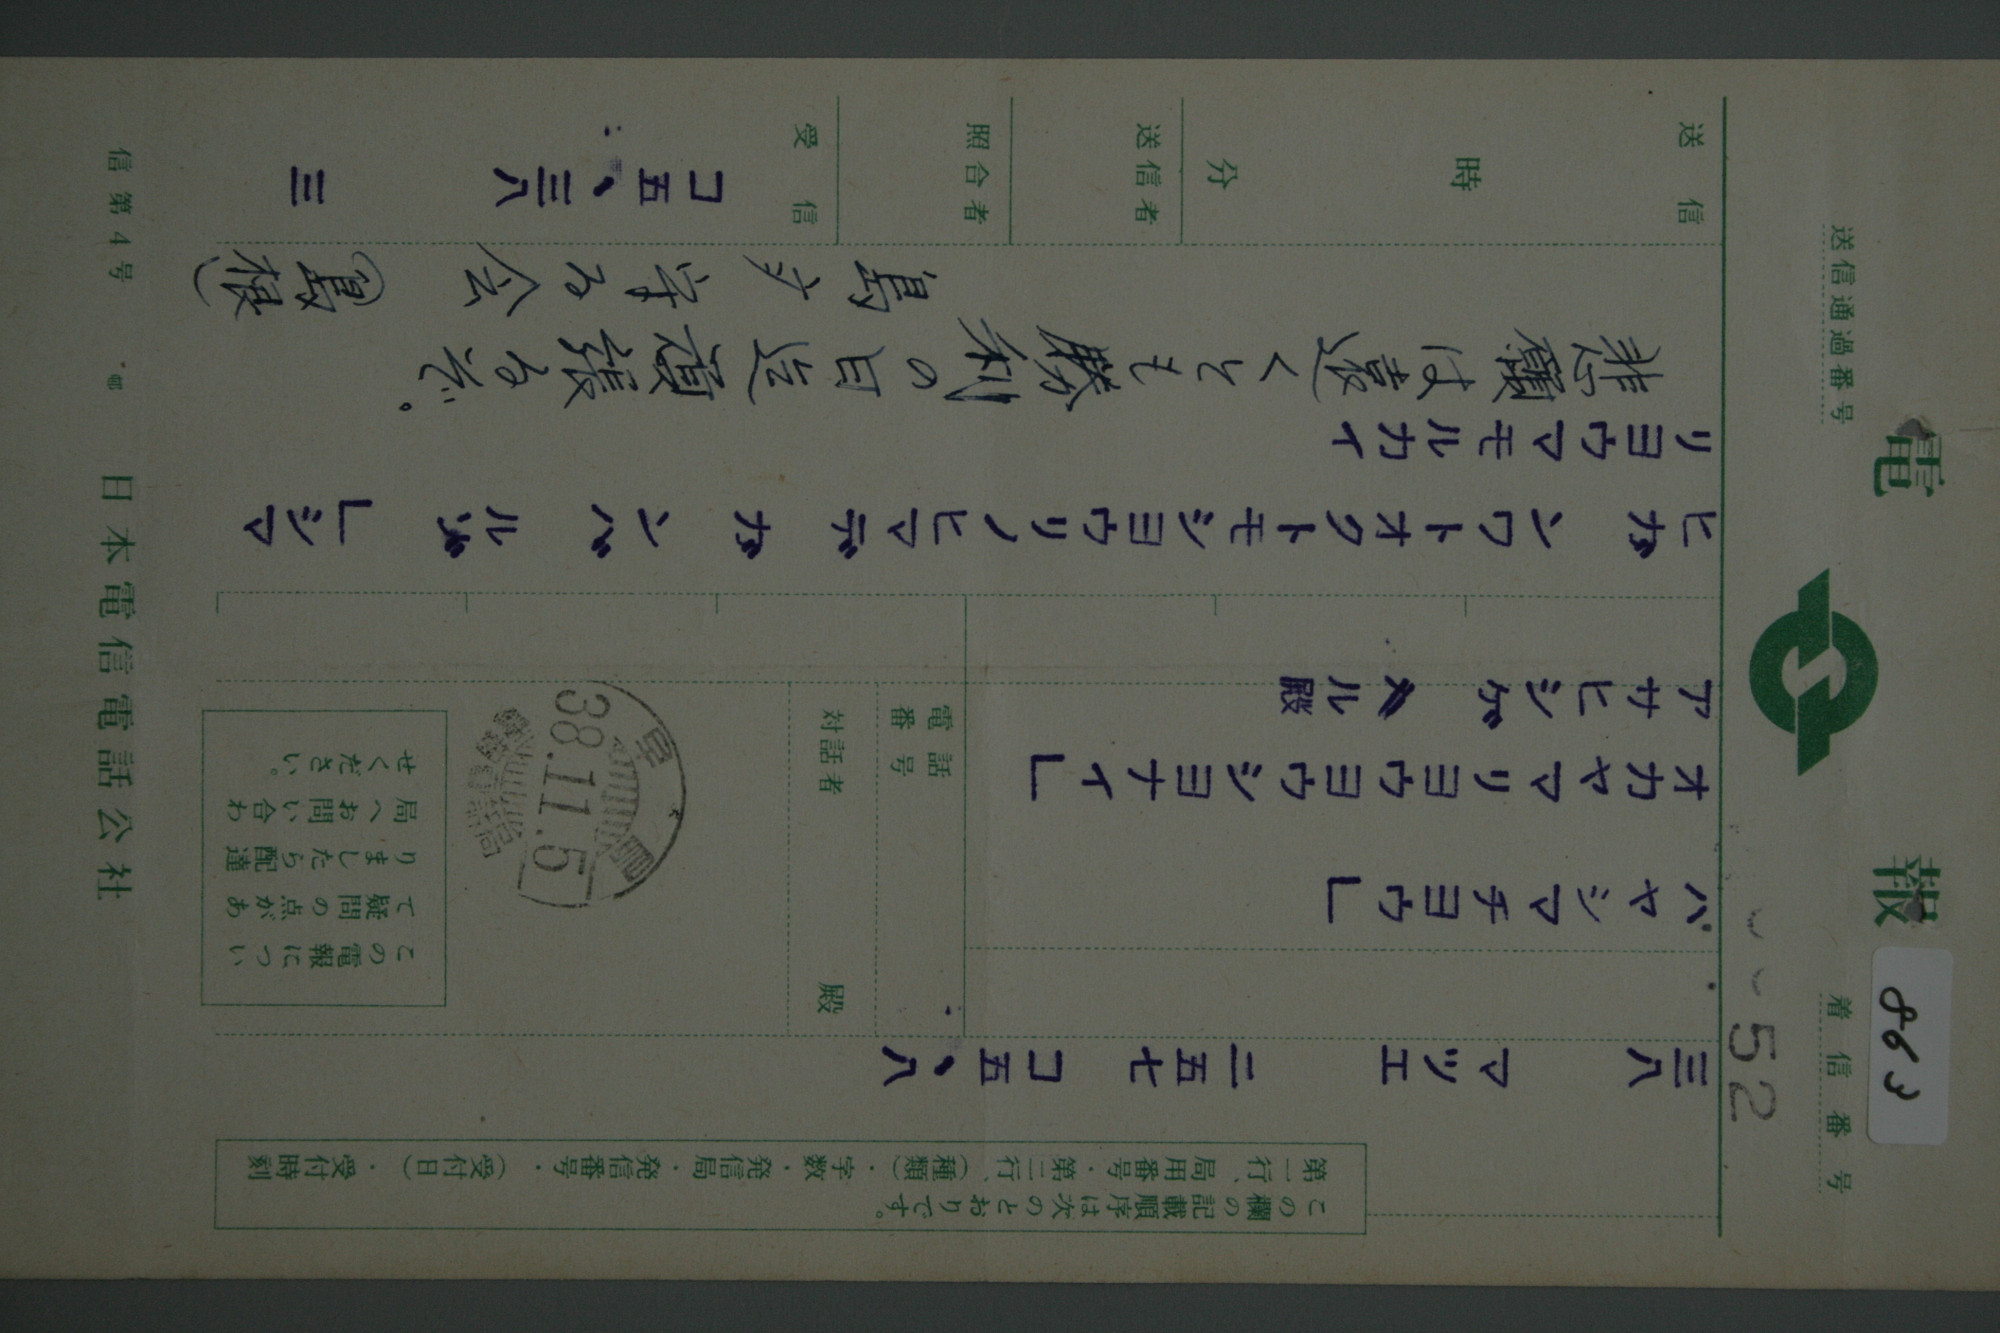 電報
送信通過番号
着信番号
863
52
この欄の記載順序は次のとおりです。
第一行、局用番号・第二行、(種類)・字数・発信局・発信番号・(受付日)・受付時刻
三八 マツエ 二五七 コ五、八
ハヤシマチヨウ」
オカヤマリヨウヨウシヨナイ」
アサヒシゲル殿
電話番号
対話者 殿
38.11.5
この電報につい
て疑問の点があ
りましたら配達
局へお問い合わ
せください。
ヒガンワトオクトモシヨウリノヒマデガンバルゾ」シマ
リヨウマモルカイ
悲願は遠くとも勝利の日迄頑張るぞ。
島 守る会(島根)
送信 時 分
送信者
照合者
受信
コ五、三八 三
信第4号
日本電信電話公社